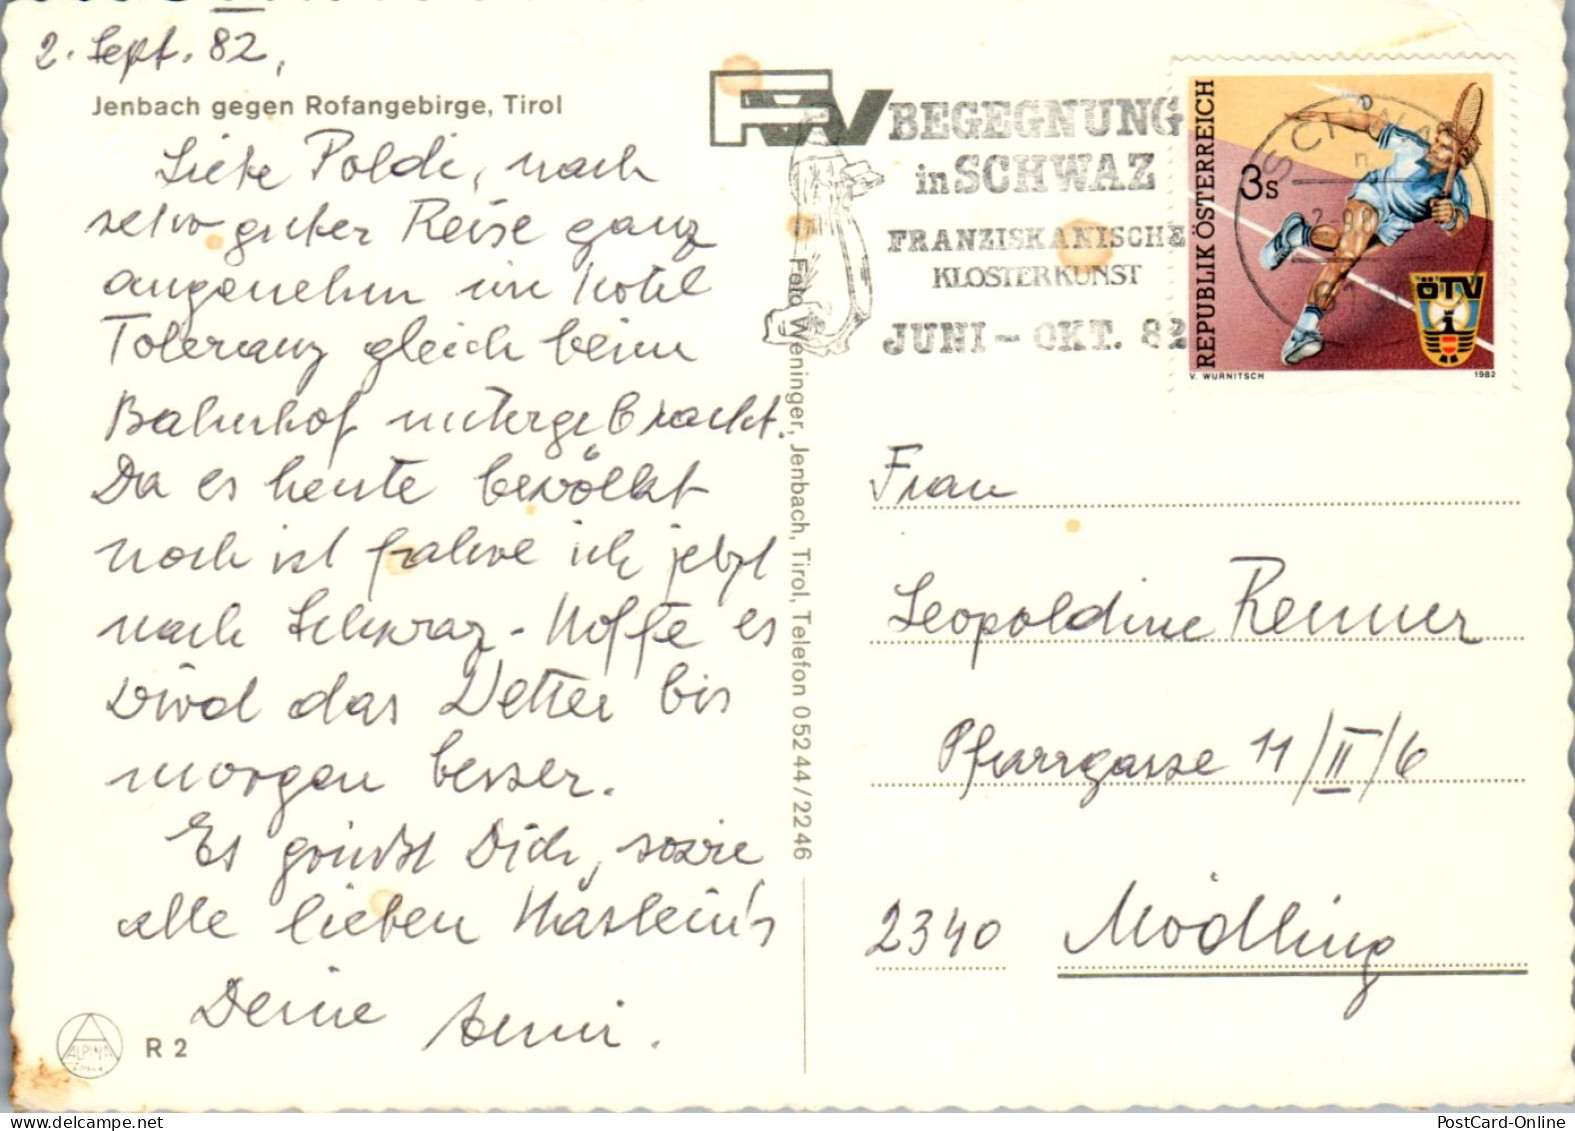 2. Sept. 82,
Jenbach gegen Rofangebirge, Tirol
Liebe Poldi, nach
sehr guter Reise ganz
angenehm im Hotel
Toleranz gleich beim
Bahnhof untergebracht.
Da es heute bewölkt
noch ist fahre ich jetzt
nach Schwaz - Hoffe es
wird das Wetter bis
morgen besser.
Es grüßt Dich, sowie
alle lieben
Deine
ALPINA
R 2
Foto Weninger, Jenbach, Tirol, Telefon 05244/2246
BEGEGNUNG
in SCHWAZ
FRANZISKANISCHE
KLOSTERKUNST
JUNI - OKT. 82
REPUBLIK ÖSTERREICH
3s
ÖTV
V. WURNITSCH
1982
Frau
Leopoldine Renner
Pfarrgasse 11/II/6
2340 Mödling
PostCard-Online